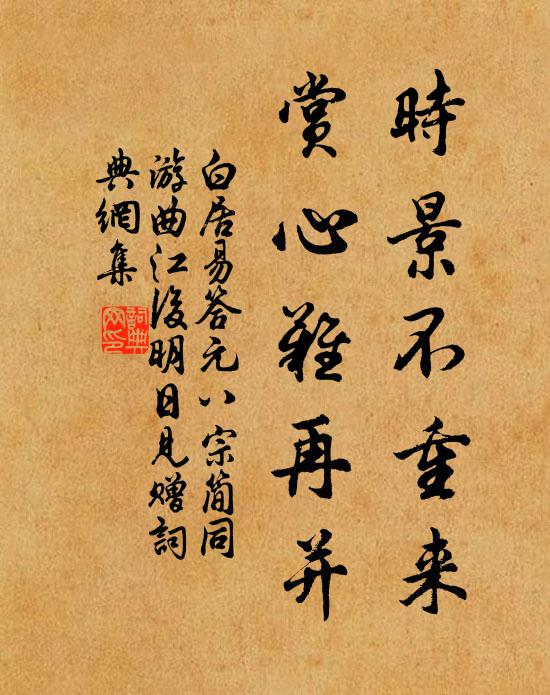 時景不重来
賞心難再并
白居易答元八宗簡同
游曲江後明日見贈詞
典網集
詞典网印